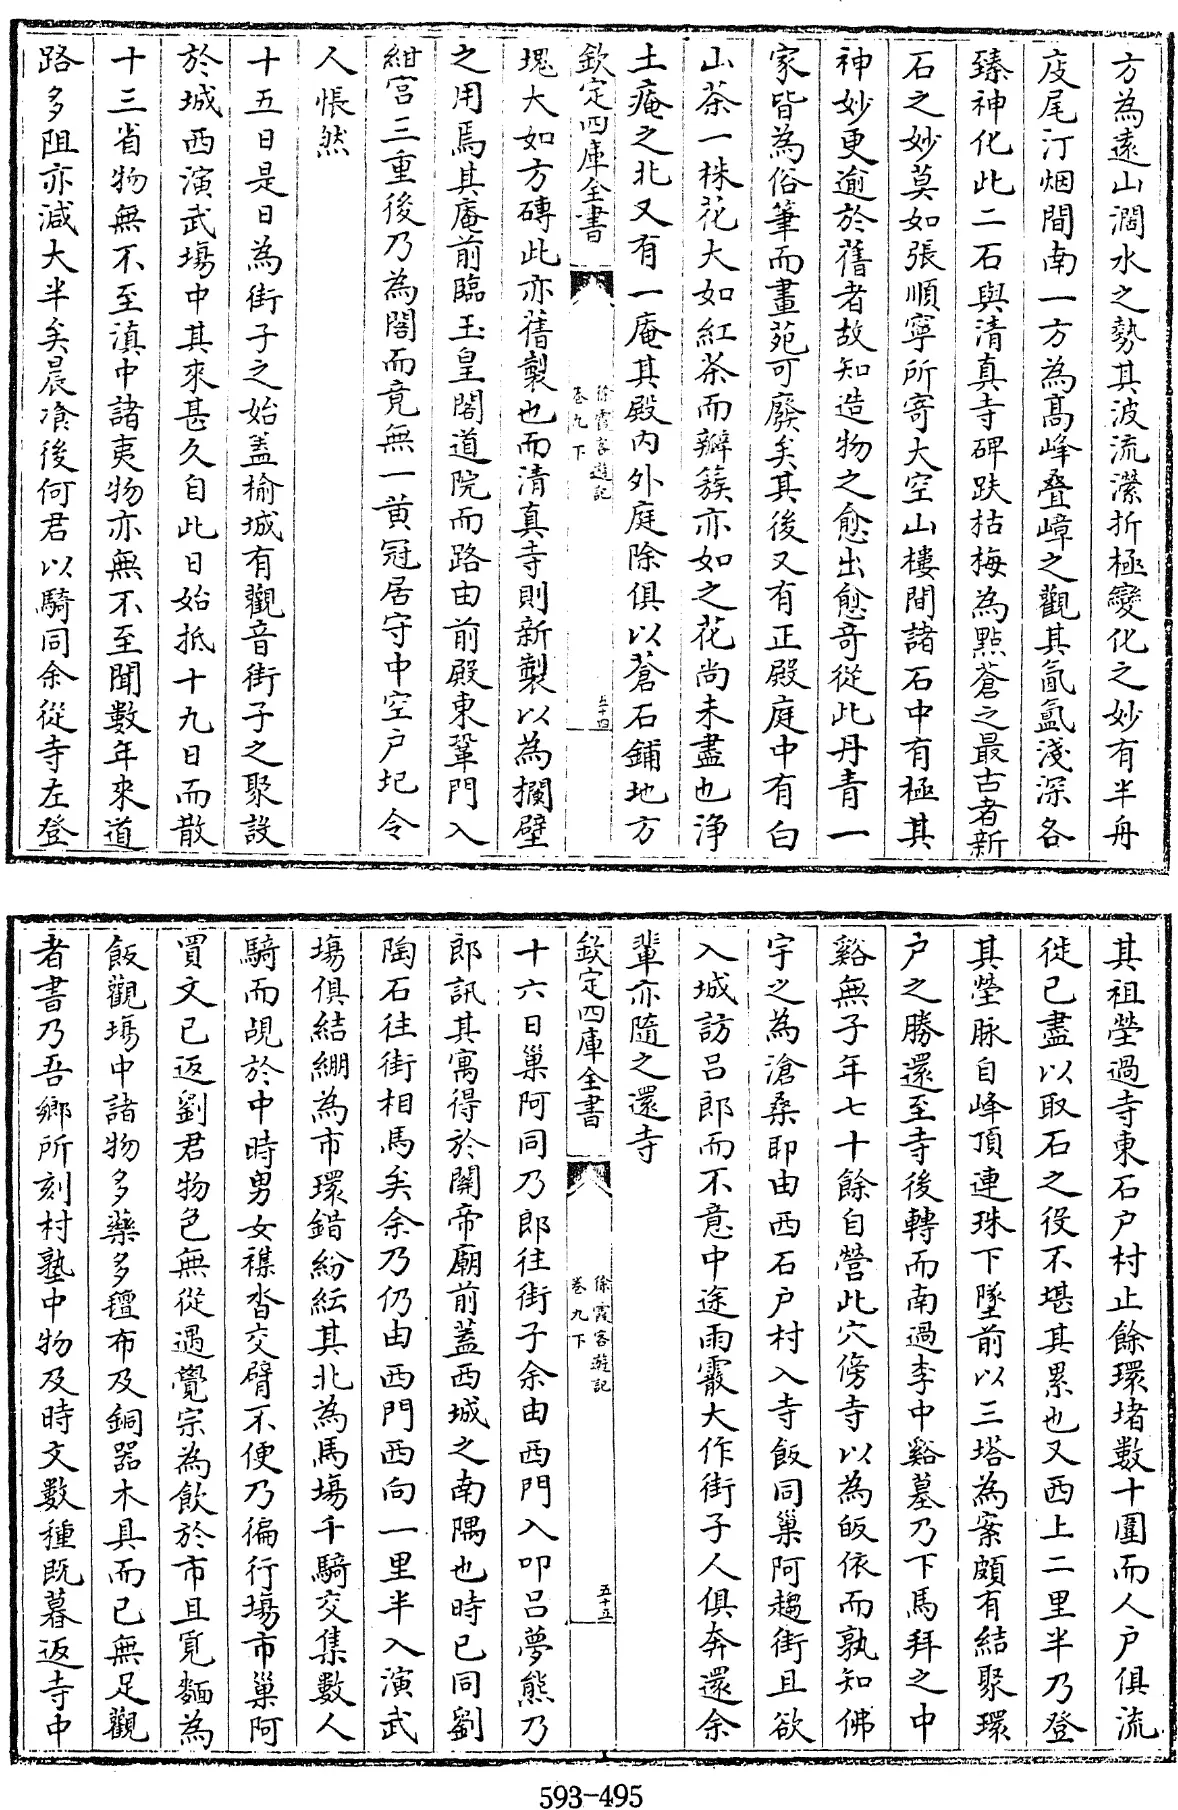 方為遠山濶水之勢其波流瀠折極變化之妙有半舟
庋尾汀烟間南一方為髙峰疊嶂之觀其氤氲淺深各
臻神化此二石與清真寺碑趺枯梅為㸃蒼之最古者新
石之妙莫如張順寧所寄大空山樓間諸石中有極其
神妙更逾於舊者故知造物之愈出愈竒從此丹青一
家皆為俗筆而畫苑可廢矣其後又有正殿庭中有白
山茶一株花大如紅茶而瓣簇亦如之花尚未盡也浄
土庵之北又有一庵其殿內外庭除俱以蒼石鋪地方
欽定四庫全書
徐霞客遊記
卷九下
五十四
塊大如方磚此亦舊製也而清真寺則新製以為欄壁
之用焉其庵前臨玉皇閣道院而路由前殿東鞏門入
紺宮三重後乃為閣而竟無一黄冠居守中空户圮令
人悵然
十五日是日為街子之始盖榆城有觀音街子之聚設
於城西演武塲中其來甚久自此日始抵十九日而散
十三省物無不至滇中諸夷物亦無不至聞數年來道
路多阻亦減大半矣晨飡後何君以騎同余從寺左登
其祖塋過寺東石户村止餘環堵數十圍而人户俱流
徙已盡以取石之役不堪其累也又西上二里半乃登
其塋脉自峰頂連珠下墜前以三塔為案頗有結聚環
户之勝還至寺後轉而南過李中谿墓乃下馬拜之中
谿無子年七十餘自營此穴傍寺以為皈依而孰知佛
宇之為滄桑耶由西石户村入寺飯同巢阿趨街且欲
入城訪吕郎而不意中途雨霰大作街子人俱奔還余
輩亦隨之還寺
欽定四庫全書
徐霞客遊記
卷九下
五十五
十六日巢阿同乃郎往街子余由西門入叩吕夢熊乃
郎訊其寓得於關帝廟前葢西城之南隅也時已同劉
陶石往街相馬矣余乃仍由西門西向一里半入演武
塲俱結綳為市環錯紛紜其北為馬塲千騎交集數人
騎而覘於中時男女襍沓交臂不便乃徧行塲市巢阿
買文已返劉君物色無從遇覺宗為飲於市且覓麵為
飯觀塲中諸物多藥多氊布及銅器木具而已無足觀
者書乃吾鄉所刻村塾中物及時文數種既暮返寺中
593-495